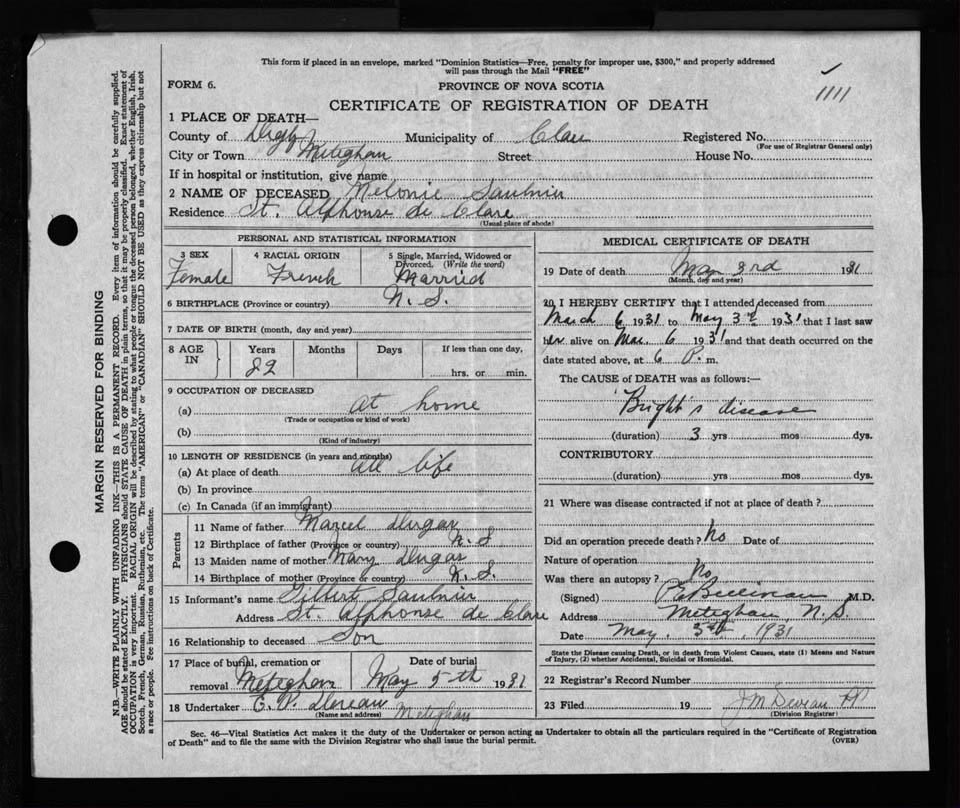 This form if placed in an envelope, marked "Dominion Statistics—Free, penalty for improper use, $300," and properly addressed
will pass through the Mail "FREE"
FORM 6.
PROVINCE OF NOVA SCOTIA
1111
CERTIFICATE OF REGISTRATION OF DEATH
1 PLACE OF DEATH—
County of Digby Municipality of Clare Registered No.
(For use of Registrar General only)
City or Town Meteghan Street House No.
If in hospital or institution, give name
2 NAME OF DECEASED Melonie Saulnier
Residence St. Alphonse de Clare
(Usual place of abode)
PERSONAL AND STATISTICAL INFORMATION
3 SEX 4 RACIAL ORIGIN 5 Single, Married, Widowed or Divorced. (Write the word)
Female French Married
6 BIRTHPLACE (Province or country) N. S.
7 DATE OF BIRTH (month, day and year)
8 AGE IN Years Months Days If less than one day,
82 hrs. or min.
9 OCCUPATION OF DECEASED
(a) at home
(Trade or occupation or kind of work)
(b)
(Kind of industry)
10 LENGTH OF RESIDENCE (in years and months)
(a) At place of death all life
(b) In province
(c) In Canada (if an immigrant)
Parents
11 Name of father Marcel Dugas
12 Birthplace of father (Province or country) N. S
13 Maiden name of mother Mary Dugas
14 Birthplace of mother (Province or country) N. S.
15 Informant's name Gilbert Saulnier
Address St. Alphonse de Clare
16 Relationship to deceased Son
17 Place of burial, cremation or removal Meteghan Date of burial May 5th 1931
18 Undertaker Meteghan
(Name and address)
MEDICAL CERTIFICATE OF DEATH
19 Date of death May 3rd 1931
(Month, day and year)
20 I HEREBY CERTIFY that I attended deceased from
March 6 1931 to May 3rd 1931 that I last saw
her alive on Mar. 6 1931 and that death occurred on the
date stated above, at 6 P. m.
The CAUSE of DEATH was as follows:—
Bright's disease
(duration) 3 yrs mos dys.
CONTRIBUTORY
(duration) yrs mos dys.
21 Where was disease contracted if not at place of death?
Did an operation precede death? No Date of
Nature of operation
Was there an autopsy? No
(Signed) M.D.
Address Meteghan, N. S.
Date May. 5th, 1931
State the Disease causing Death, or in death from Violent Causes, state (1) Means and Nature
of Injury, (2) whether Accidental, Suicidal or Homicidal.
22 Registrar's Record Number
23 Filed 19 J M
(Division Registrar)
Sec. 46—Vital Statistics Act makes it the duty of the Undertaker or person acting as Undertaker to obtain all the particulars required in the "Certificate of Registration
of Death" and to file the same with the Division Registrar who shall issue the burial permit. (OVER)
MARGIN RESERVED FOR BINDING
N.B.—WRITE PLAINLY WITH UNFADING INK—THIS IS A PERMANENT RECORD. Every item of information should be carefully supplied.
AGE should be stated EXACTLY. PHYSICIANS should STATE CAUSE OF DEATH in plain terms, so that it may be properly classified. Exact statement of
OCCUPATION is very important. RACIAL ORIGIN will be described by stating to what people or tongue the deceased person belonged, whether English, Irish,
Scotch, French, German, Russian, Ruthenian, etc. The terms "AMERICAN" or "CANADIAN" SHOULD NOT BE USED as they express citizenship but not
a race or people. Fee instructions on back of Certificate.